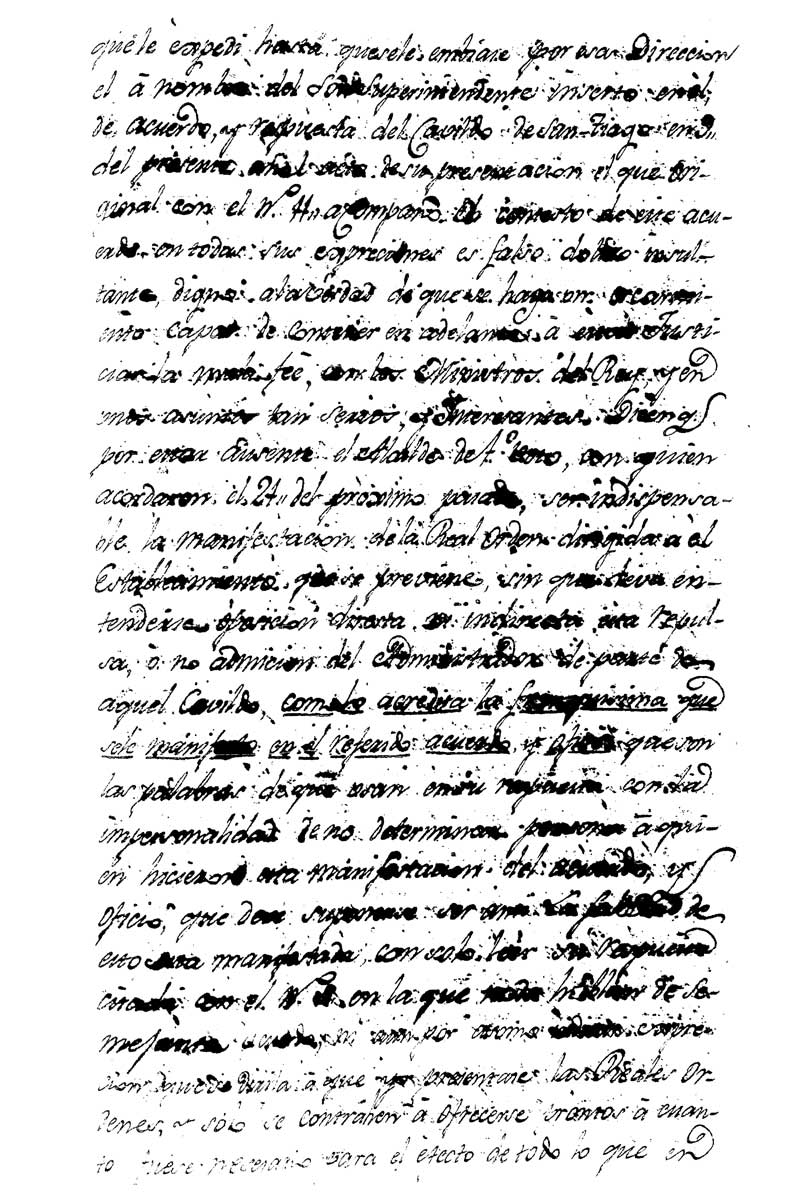 que le expedi hasta que se le embiase por esa Direccion
el à nombre del Sor Superintendente inserto en èl,
de acuerdo, y repuesta del Cavildo de San-Tiago en 3,,
del presente de su presentacion el que ori-
ginal con el N.º 4,, acompaño. El contesto de este acu-
erdo en todas sus expreciones es falso insul-
tante, digno à la verdad de que se haga un escarmi-
ento capas de contener en adelante à Justi-
cia la mala feè, con los Ministros del Rey, y en
unos asuntos tan serios, e Interesantes. Dicen q.e
por estar Ausente el Alcalde de 1.º Voto, con quien
acordaron el 24,, del pròximo pasado, ser indispensa-
ble la manifestacion de la Real Orden dirigida à el
Establecimiento que se previene, sin que deva en-
tenderse oposicion directa ni indirecta esta repul-
sa, ò no admicion del Administrador de parte de
aquel Cavildo, como lo acredita la franquisima que
se le manifesto en el referido acuerdo y oficio que son
las palabras de que usan en su repuesta con la
impersonalidad de no determinar persona à qui-
èn hicieron esta manifestacion del acuerdo, y
Oficio, que deve suponerse ser à mi. La falsedad de
esto esta manifestada, con solo leèr su repuesta
citada con el N.º en la que nada hablan de se-
mejante acuerdo, ni aun por expre-
sion que de à que yo presentase las Reales Or-
denes, y sòlo se contrahen à ofrecerse prontos à cuan-
to fuese necesario para el efecto de todo lo que en